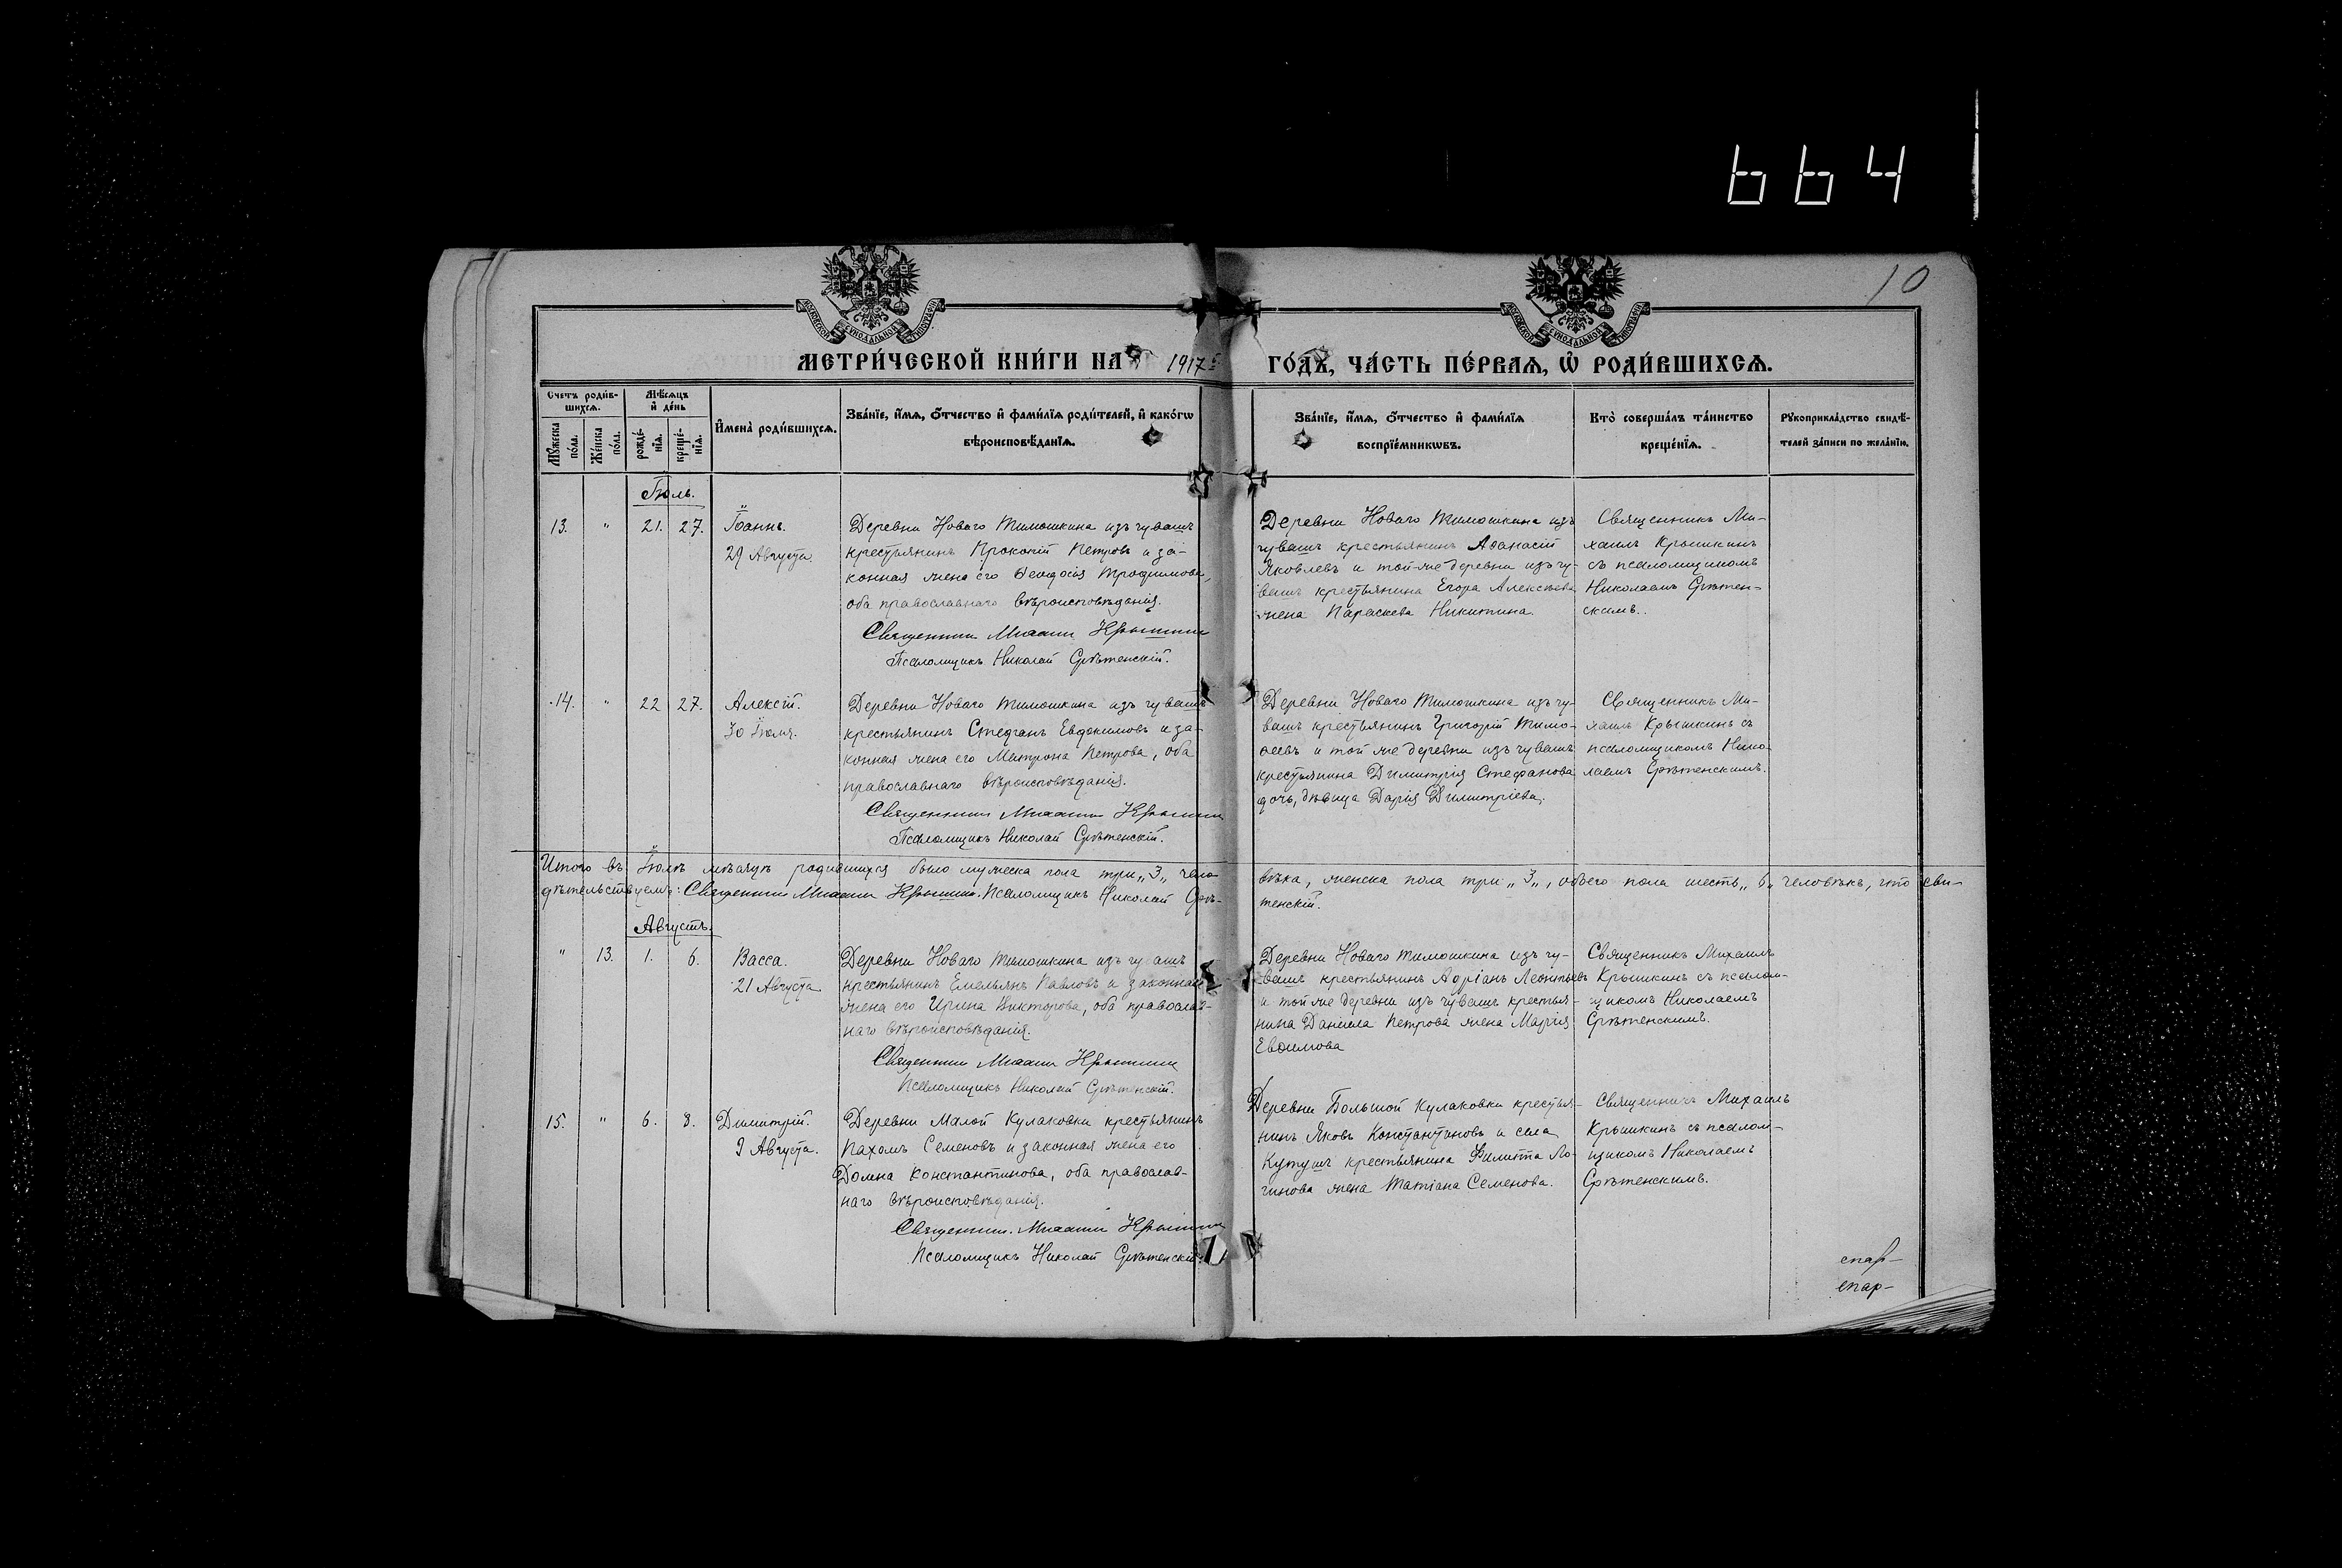 664
10
МОСКОВСКОЙ СѴНОДАЛЬНОЙ ТИПОГРАФІИ
МОСКОВСКОЙ СѴНОДАЛЬНОЙ ТИПОГРАФІИ
МЕТРИ́ЧЕСКОЙ КНИ́ГИ НА 1917й ГО́ДЪ, ЧА́СТЬ ПЕ́РВАѦ, Ѽ РОДИ́ВШИХСѦ.
Счетъ роди́в-
шихсѧ.
Мꙋ́жеска по́ла.
Же́нска по́ла.
Мѣ́сѧцъ
и҆ де́нь
рожде́-
нїѧ.
креще́-
нїѧ.
И҆мена̀ роди́вшихсѧ.
Зва́нїе, и҆́мѧ, ѻ҆́тчество и҆ фами́лїѧ роди́телей, и҆ како́гѡ
вѣроисповѣ́данїѧ.
Зва́нїе, и҆́мѧ, ѻ҆́тчество и҆ фами́лїѧ
воспрїе́мникѡвъ.
Кто̀ соверша́лъ та́инство
креще́нїѧ.
Рꙋкоприкла́дство свидѣ́-
телей за́писи по жела́нїю.
Іюль.
13. " 21. 27.
Іоаннъ.
29 Августа.
Деревни Новаго Тимошкина изъ чувашъ
крестьянинъ Прокопій Петровъ и за-
конная жена его Ѳеодосія Трофимова,
оба православнаго вѣроисповѣданія.
Священникъ Михаилъ Крышкинъ
Псаломщикъ Николай Срѣтенскій.
Деревни Новаго Тимошкина изъ
чувашъ крестьянинъ Аѳанасій
Яковлевъ и той-же деревни изъ чу-
вашъ крестьянина Егора Алексѣева
жена Параскева Никитина.
Священникъ Ми-
хаилъ Крышкинъ
съ псаломщикомъ
Николаемъ Срѣтен-
скимъ.
14. " 22 27.
Алексій.
30 Іюля.
Деревни Новаго Тимошкина изъ чувашъ
крестьянинъ Стефанъ Евдокимовъ и за-
конная жена его Матрона Петрова, оба
православнаго вѣроисповѣданія.
Священникъ Михаилъ Крышкинъ
Псаломщикъ Николай Срѣтенскій.
Деревни Новаго Тимошкина изъ чу-
вашъ крестьянинъ Григорій Тимо-
ѳеевъ и той же деревни изъ чувашъ
крестьянина Димитрія Стефанова
дочь, дѣвица Дарія Димитріева.
Священникъ Ми-
хаилъ Крышкинъ съ
псаломщикомъ Нико-
лаемъ Срѣтенскимъ.
Итого въ Іюлѣ мѣсяцѣ родившихся было мужеска пола три „3„ чело-
вѣка, женска пола три „3„, обоего пола шесть „6„ человѣкъ, что сви-
дѣтельствуемъ: Священникъ Михаилъ Крышкинъ. Псаломщикъ Николай Срѣ-
тенскій.
Августъ.
" 13. 1. 6.
Васса.
21 Августа
Деревни Новаго Тимошкина изъ чувашъ
крестьянинъ Емельянъ Павловъ и законная
жена его Ирина Викторова, оба православ-
наго вѣроисповѣданія.
Священникъ Михаилъ Крышкинъ
Псаломщикъ Николай Срѣтенскій.
Деревни Новаго Тимошкина изъ чу-
вашъ крестьянинъ Адріанъ Леонтьевъ
и той же деревни изъ чувашъ крестья-
нина Даніила Петрова жена Марія
Евѳимова
Священникъ Михаилъ
Крышкинъ съ псалом-
щикомъ Николаемъ
Срѣтенскимъ.
15. " 6. 8.
Димитрій.
9 Августа.
Деревни Малой Кулаковки крестьянинъ
Пахомъ Семеновъ и законная жена его
Домна Константинова, оба православ-
наго вѣроисповѣданія.
Священникъ Михаилъ Крышкинъ
Псаломщикъ Николай Срѣтенскій.
Деревни Большой Кулаковки крестья-
нинъ Яковъ Константиновъ и села
Кутушъ крестьянина Филиппа Ло-
гинова жена Татіана Семенова.
Священникъ Михаилъ
Крышкинъ съ псалом-
щикомъ Николаемъ
Срѣтенскимъ.
епар-
епар-